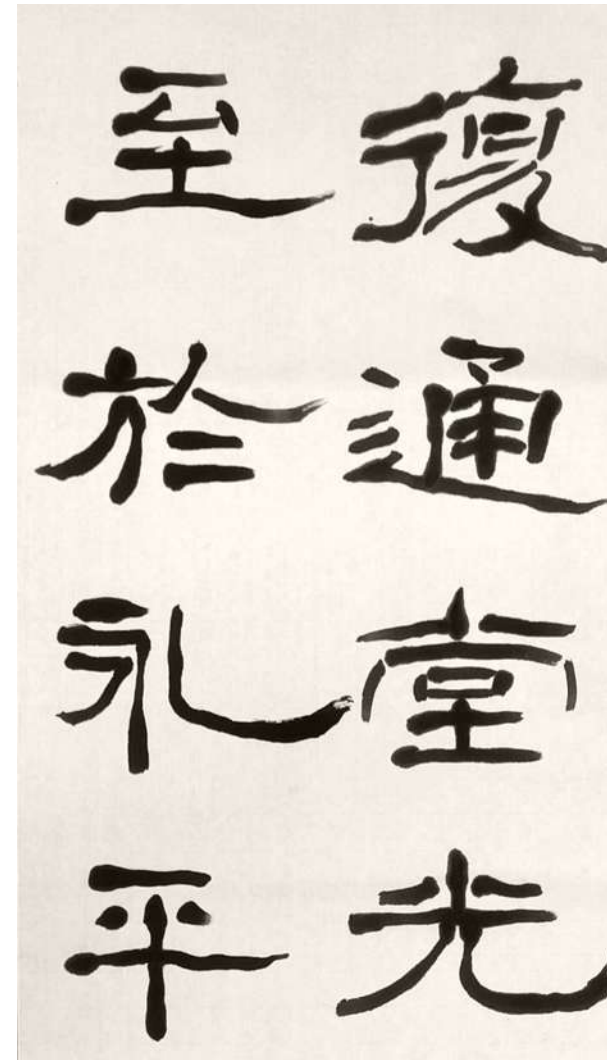 復通堂光
至於永平